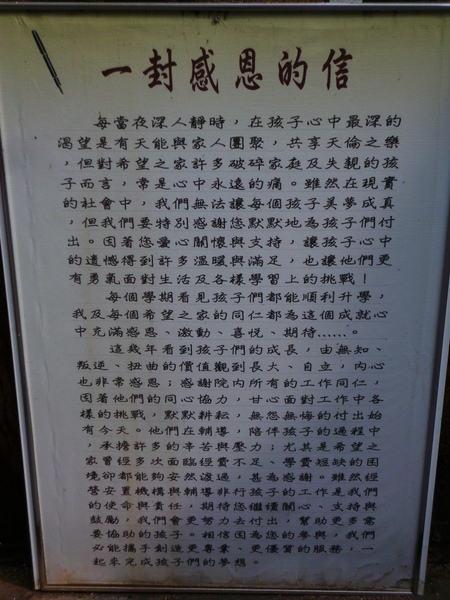 一封感恩的信
每當夜深人靜時，在孩子心中最深的
渴望是有天能與家人團聚，共享天倫之樂
，但對希望之家許多破碎家庭及失親的孩
子而言，常是心中永遠的痛。雖然在現實
的社會中，我們無法讓每個孩子美夢成真
，但我們要特別感謝您默默地為孩子們付
出。因著您愛心關懷與支持，讓孩子心中
的遺憾得到許多溫暖與滿足，也讓他們更
有勇氣面對生活及各樣學習上的挑戰！
每個學期看見孩子們都能順利升學，
我及每個希望之家的同仁都為這個成就心
中充滿感恩、激動、喜悅、期待……。
這幾年看到孩子們的成長，由無知、
叛逆、扭曲的價值觀到長大、自立，內心
也非常感恩；感謝院內所有的工作同仁，
因著他們的同心協力，甘心面對工作中各
樣的挑戰，默默耕耘，無怨無悔的付出始
有今天。他們在輔導，陪伴孩子的過程中
，承擔許多的辛苦與壓力；尤其是希望之
家曾經多次面臨經費不足、學費短缺的困
境卻都能夠安然渡過，甚為感謝。雖然經
營安置機構與輔導非行孩子的工作是我們
的使命與責任，期待您繼續關心、支持與
鼓勵，我們會更努力去付出，幫助更多需
要協助的孩子。相信因為您的參與，我們
必能攜手創造更專業、更優質的服務，一
起來完成孩子們的夢想。